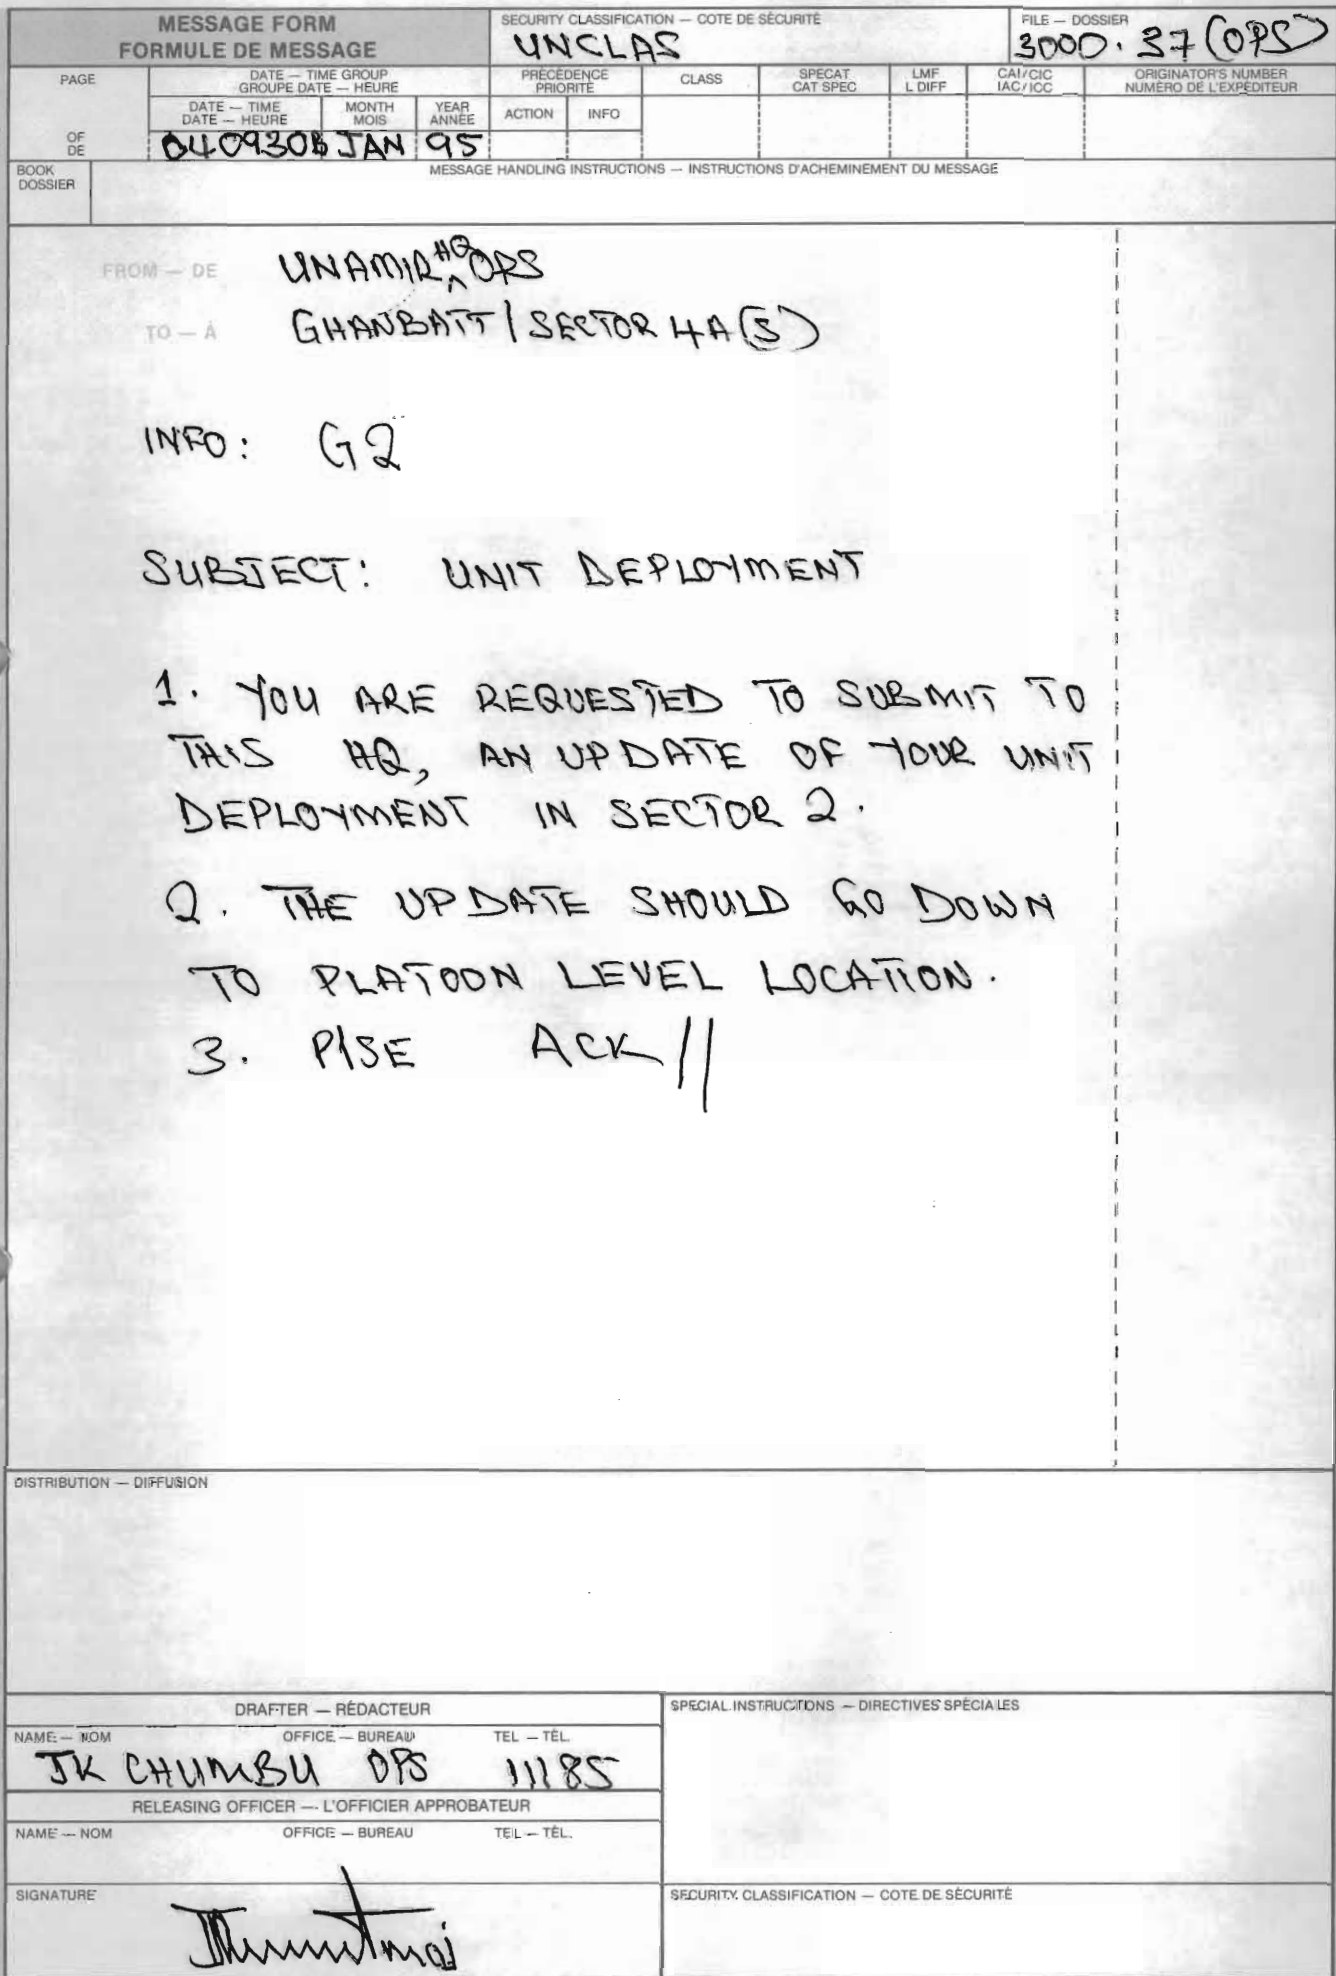 MESSAGE FORM
FORMULE DE MESSAGE
SECURITY CLASSIFICATION — COTE DE SÉCURITÉ
UNCLAS
FILE — DOSSIER
3000.37 (OPS)
PAGE
OF
DE
DATE — TIME GROUP
GROUPE DATE — HEURE
DATE — TIME
DATE — HEURE
MONTH
MOIS
YEAR
ANNÉE
040930B JAN 95
PRÉCÉDENCE
PRIORITÉ
ACTION
INFO
CLASS
SPECAT
CAT SPEC
LMF
L DIFF
CAI/CIC
IAC/ICC
ORIGINATOR'S NUMBER
NUMÉRO DE L'EXPÉDITEUR
BOOK
DOSSIER
MESSAGE HANDLING INSTRUCTIONS — INSTRUCTIONS D'ACHEMINEMENT DU MESSAGE
FROM — DE UNAMIR HQ OPS
TO — À GHANBATT / SECTOR 4A(S)
INFO: G2
SUBJECT: UNIT DEPLOYMENT
1. YOU ARE REQUESTED TO SUBMIT TO
THIS HQ, AN UPDATE OF YOUR UNIT
DEPLOYMENT IN SECTOR 2.
2. THE UPDATE SHOULD GO DOWN
TO PLATOON LEVEL LOCATION.
3. PLSE ACK //
DISTRIBUTION — DIFFUSION
DRAFTER — RÉDACTEUR
NAME — NOM OFFICE — BUREAU TEL — TÉL.
JK CHUMBU OPS 11185
RELEASING OFFICER — L'OFFICIER APPROBATEUR
NAME — NOM OFFICE — BUREAU TEL — TÉL.
SIGNATURE
SPECIAL INSTRUCTIONS — DIRECTIVES SPÉCIALES
SECURITY CLASSIFICATION — COTE DE SÉCURITÉ